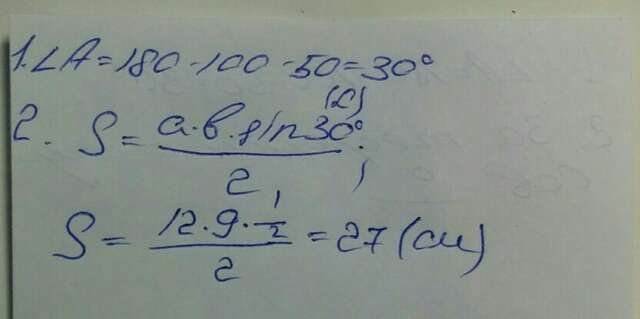 1. ∠A = 180 - 100 - 50 = 30°
(α)
2. S = a·b·sin30° / 2 ;
S = 12·9·1/2 / 2 = 27 (см)